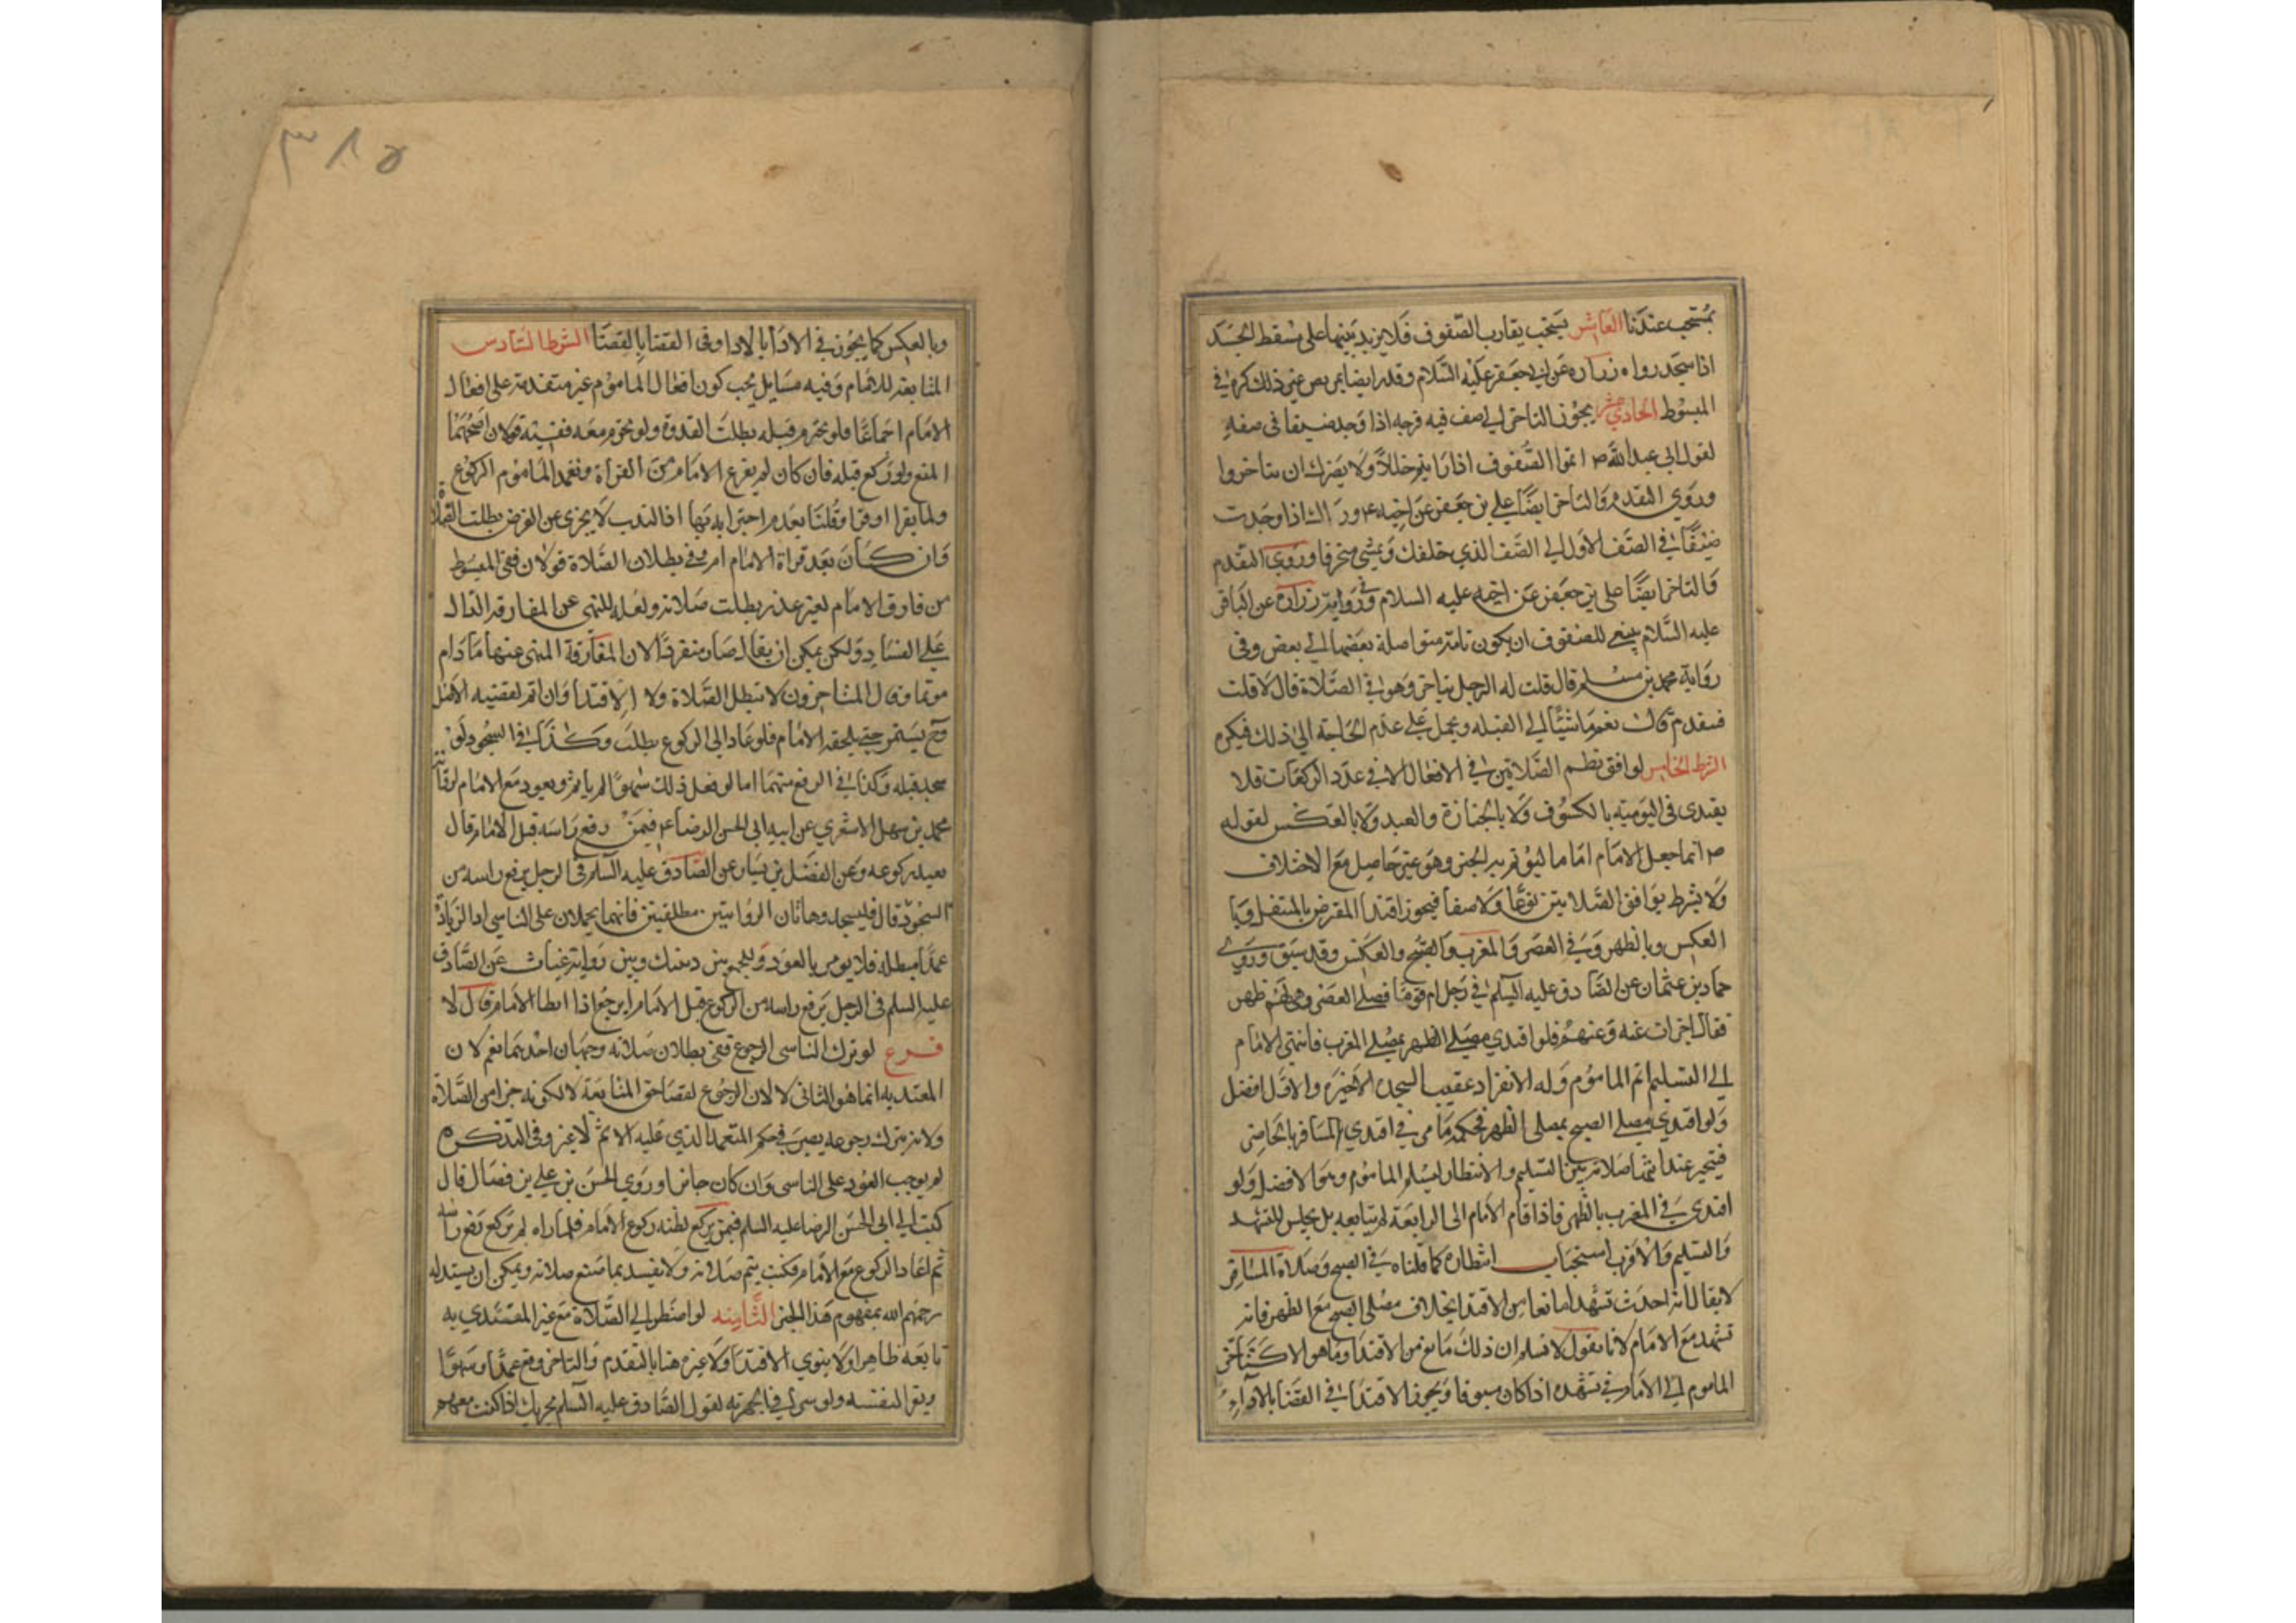 بمستحب عندنا العاشر يستحب تقارب الصفوف فلا يزيد بينها على مسقط الجسد
اذا سجد رواه زرارة عن ابي جعفر عليه السلام وقدر ايضا بمربض عنز ذلك كره في
المبسوط الحادي عشر يجوز التاخر الى صف فيه فرجه اذا وجد ضيقا في صفه
لقول ابي عبد الله ص اتموا الصفوف اذا رايتم خللا ولا يضرك ان تتاخروا
وروي التقدم والتاخر ايضا علي بن جعفر عن اخيه ع ورآك اذا وجدت
ضيقا في الصف الاول الى الصف الذي خلفك وتمشي منحرفا وروي التقدم
والتاخر ايضا علي بن جعفر عن اخيه عليه السلام وفي رواية زرارة عن الباقر
عليه السلام ينبغي للصفوف ان يكون تامة متواصلة بعضها الى بعض وفي
رواية محمد بن مسلم قال قلت له الرجل يتاخر وهو في الصلاة قال لا قلت
فيتقدم قال نعم ماشيا الى القبله ويحمل على عدم الحاجة الى ذلك فيكره
الشرط الخامس توافق نظم الصلاتين في الافعال لا في عدد الركعات فلا
يقتدى في اليومية بالكسوف ولا بالجنازة والعيد ولا بالعكس لقوله
ص انما جعل الامام اماما ليؤتم به الخبر وهو غير حاصل مع الاختلاف
ولا يشرط توافق الصلاتين نوعا ولا صفا فيجوز اقتدا المفترض بالمتنفل وبا
العكس وبالظهر في العصر والمغرب والصبح والعكس وقد سبق وروى
حماد بن عثمان عن الصادق عليه السلم في رجل ام قوما فصلى العصر وهي لهم ظهر
فقال اجزات عنه وعنهم فلو اقتدى مصلي الظهر بمصلي المغرب فانتهى الامام
الى التسليم اتم الماموم وله الانفراد عقيب السجدة الاخيرة والاول افضل
ولو اقتدى مصلي الصبح بمصلي الظهر فحكمه ما مر في اقتدي المسافر بالحاضر
فيتخير عندا تمام صلاته بين التسليم والانتظار ليسلم الماموم وهو الافضل ولو
اقتدى في المغرب بالظهر فاذا قام الامام الى الرابعة لم يتابعه بل يجلس للتشهد
والتسليم والاقرب استحباب انتظاره كما قلناه في الصبح وصلاة المسافر
لا يقال انه احدث تشهدا مانعا من الاقتدا بخلاف مصلي الصبح مع الظهر فانه
تشهد مع الامام لانا نقول لا نسلم ان ذلك مانع من الاقتدا وما هو الا كتاخر
الماموم الى الامام في تشهده اذا كان مسبوقا ويجوز الاقتدا في القضا بالاداء
٣٨٥
وبالعكس كما يجوز في الادا بالادا وفي القضا بالقضا الشرط السادس
المتابعة للامام وفيه مسايل يجب كون افعال الماموم غير متقدمة على افعال
الامام اجماعا فلو تحرم قبله بطلت القدوة ولو تحرم معه ففيه قولان اصحهما
المنع ولو ركع قبله فان كان لم يفرغ الامام من القراة وتعمد الماموم الركوع
ولما يقرا او قرا وقلنا بعدم اجتزايه بها اذ الندب لا يجزي عن الفرض بطلت الصلاة
وان كان بعد قراة الامام اثم وفي بطلان الصلاة قولان ففي المبسوط
من فارق الامام لغير عذر بطلت صلاته ولعله للنهي عن المفارقة الدال
على الفساد ولكن يمكن ان يقال صار منفردا لان المفارقة المنهي عنها ما دام
موتما وقال المتاخرون لا تبطل الصلاة ولا الاقتدا وان اثم لقضية الاصل
وح يستمر حتى يلحقه الامام فلو عاد الى الركوع بطلت وكذا في السجود لو
سجد قبله وكذا في الرفع منهما اما لو فعل ذلك سهوا لم ياثم ويعود مع الامام لرواية
محمد بن سهل الاشعري عن ابيه ابي الحسن الرضا ع فيمن رفع راسه قبل الامام قال
يعيد ركوعه وعن الفضل بن يسار عن الصادق عليه السلم في الرجل يرفع راسه من
السجود قال فليسجد وهاتان الروايتين مطلقتين فانهما يحملان على الناسي اذ الزيادة
عمدا مبطله فلا يومر بالعود وللجمع بين ذينك وبين رواية غياث عن الصادق
عليه السلم في الرجل يرفع راسه من الركوع قبل الامام ايرجع اذا ابطا الامام قال لا
فرع لو ترك الناسي الرجوع ففي بطلان صلاته وجهان احدهما نعم لان
المعتد به انما هو الثاني لا لان الرجوع لقضا حق المتابعة لا لكونه جزا من الصلاة
ولانه بترك رجوعه يصير في حكم المتعمد الذي عليه الاثم لا غير وفي التذكره
لم يوجب العود على الناسي وان كان جائزا وروي الحسن بن علي بن فضال قال
كتبت الى ابي الحسن الرضا عليه السلم فيمن ركع لظنه ركوع الامام فلما راه لم يركع رفع راسه
ثم اعاد الركوع مع الامام فكتب يتم صلاته ولا تفسد بما صنع صلاته ويمكن ان يستدل له
رحمهم الله بمفهوم هذا الخبر الثامنه لو اضطر الى الصلاة مع غير المقتدي به
تابعه ظاهرا ولا ينوي الاقتدا ولا عبرة هنا بالتقدم والتاخر وقع عمدا وسهوا
ويقرا لنفسه ولو سرا في الجهرية لقول الصادق عليه السلم يجزيك اذا كنت معهم